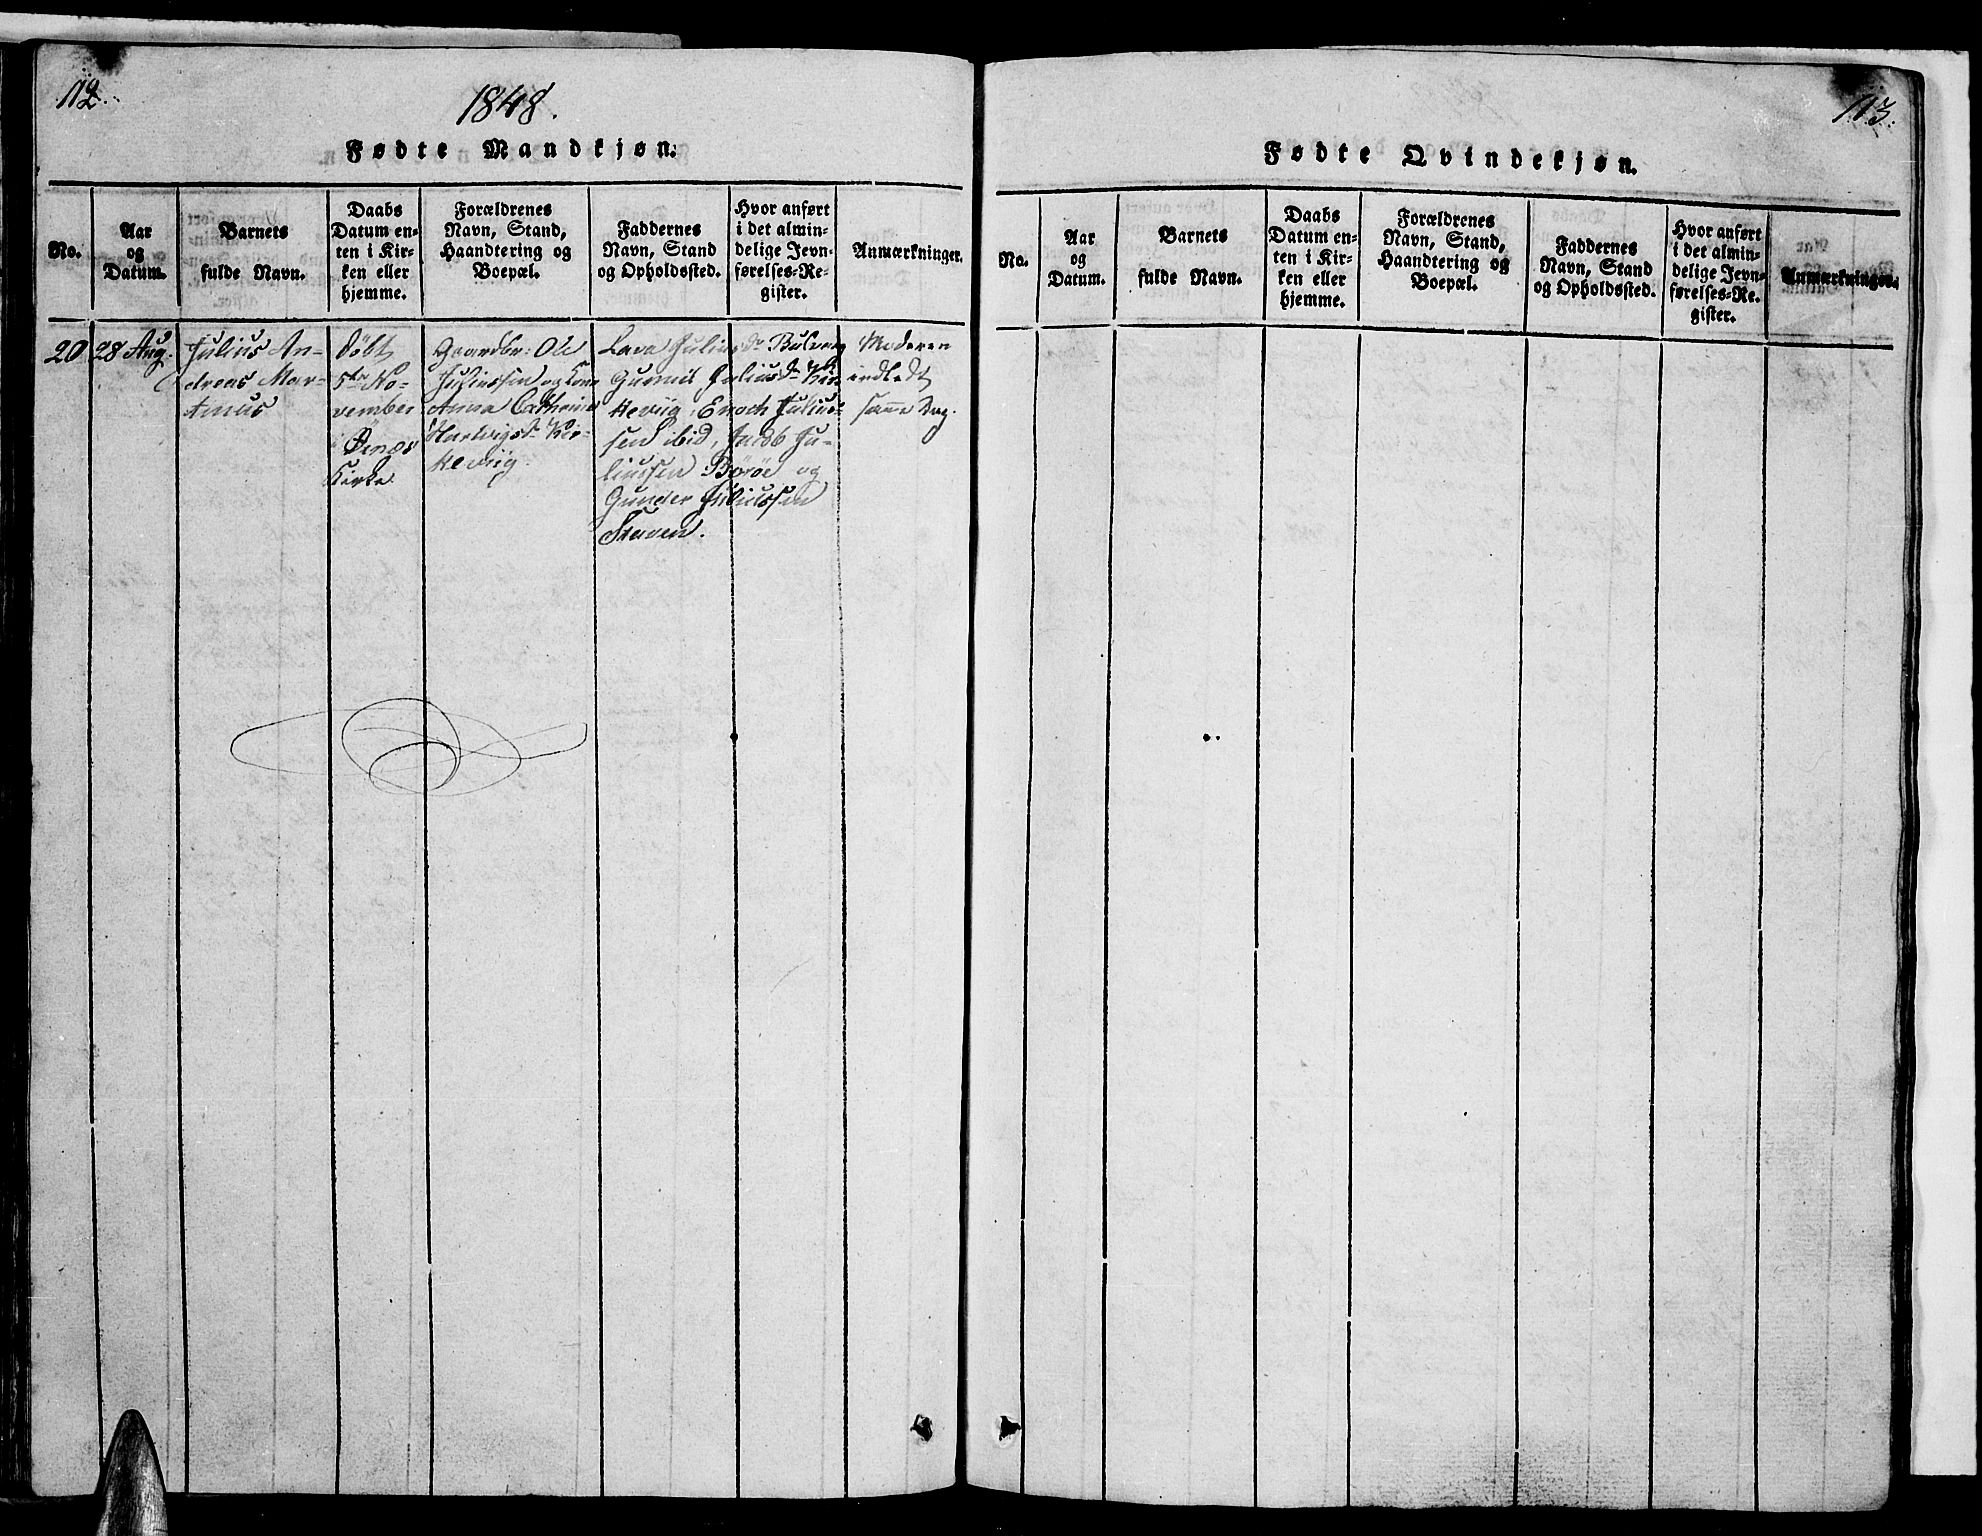 112.
1848.
Fødte Mandkjøn.
No.
Aar
og
Datum.
Barnets
fulde Navn.
Daabs
Datum en-
ten i Kir-
ken eller
hjemme.
Forældrenes
Navn, Stand,
Haandtering og
Boepæl.
Faddernes
Navn, Stand
og Opholdssted.
Hvor anført
i det almin-
delige Jevn-
førelses-Re-
gister.
Anmærkninger.
20
28 Aug.
Julius An-
dreas Mar-
tinus
döbt
5te No-
vember
i Ørnæs
Kirke
Gaardbr: Ole
Juliussen og Kone
Anna Cathrina
Hartvigsd. Kir-
keviig.
Lava Juliusdr
Gunnil Juliusd. Kir-
keviig, Enoch Julius-
sen ibid, Jacob Ju-
liussen Börøe og
Gunder Juliussen
Moderen
indledt
samme Dag.
113.
Fødte Qvindekjøn.
No.
Aar
og
Datum.
Barnets
fulde Navn.
Daabs
Datum en-
ten i Kir-
ken eller
hjemme.
Forældrenes
Navn, Stand,
Haandtering og
Boepæl.
Faddernes
Navn, Stand
og Opholdssted.
Hvor anført
i det almin-
delige Jevn-
førelses-Re-
gister.
Anmærkninger.